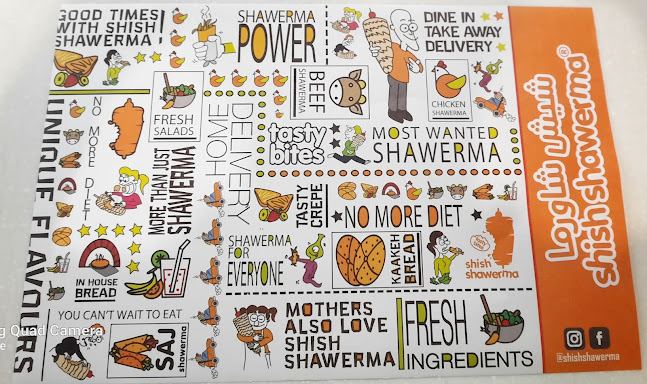 GOOD TIMES
WITH SHISH
SHAWERMA!
SHAWERMA
POWER
DINE IN
TAKE AWAY
DELIVERY
FRESH
SALADS
BEEF
SHAWERMA
CHICKEN
SHAWERMA
UNIQUE FLAVOURS
NO
MORE
DIET
MORE THAN JUST
SHAWERMA
HOME
DELIVERY
tasty
bites
MOST WANTED
SHAWERMA
TASTY
CREPE
NO MORE DIET
IN HOUSE
BREAD
SHAWERMA
FOR
EVERYONE
KAAKEH
BREAD
shish
shawerma
YOU CAN'T WAIT TO EAT
SAJ
shawerma
MOTHERS
ALSO LOVE
SHISH
SHAWERMA
FRESH
INGREDIENTS
شيش شاورما
shish shawerma®
@shishshawerma
Quad Camera